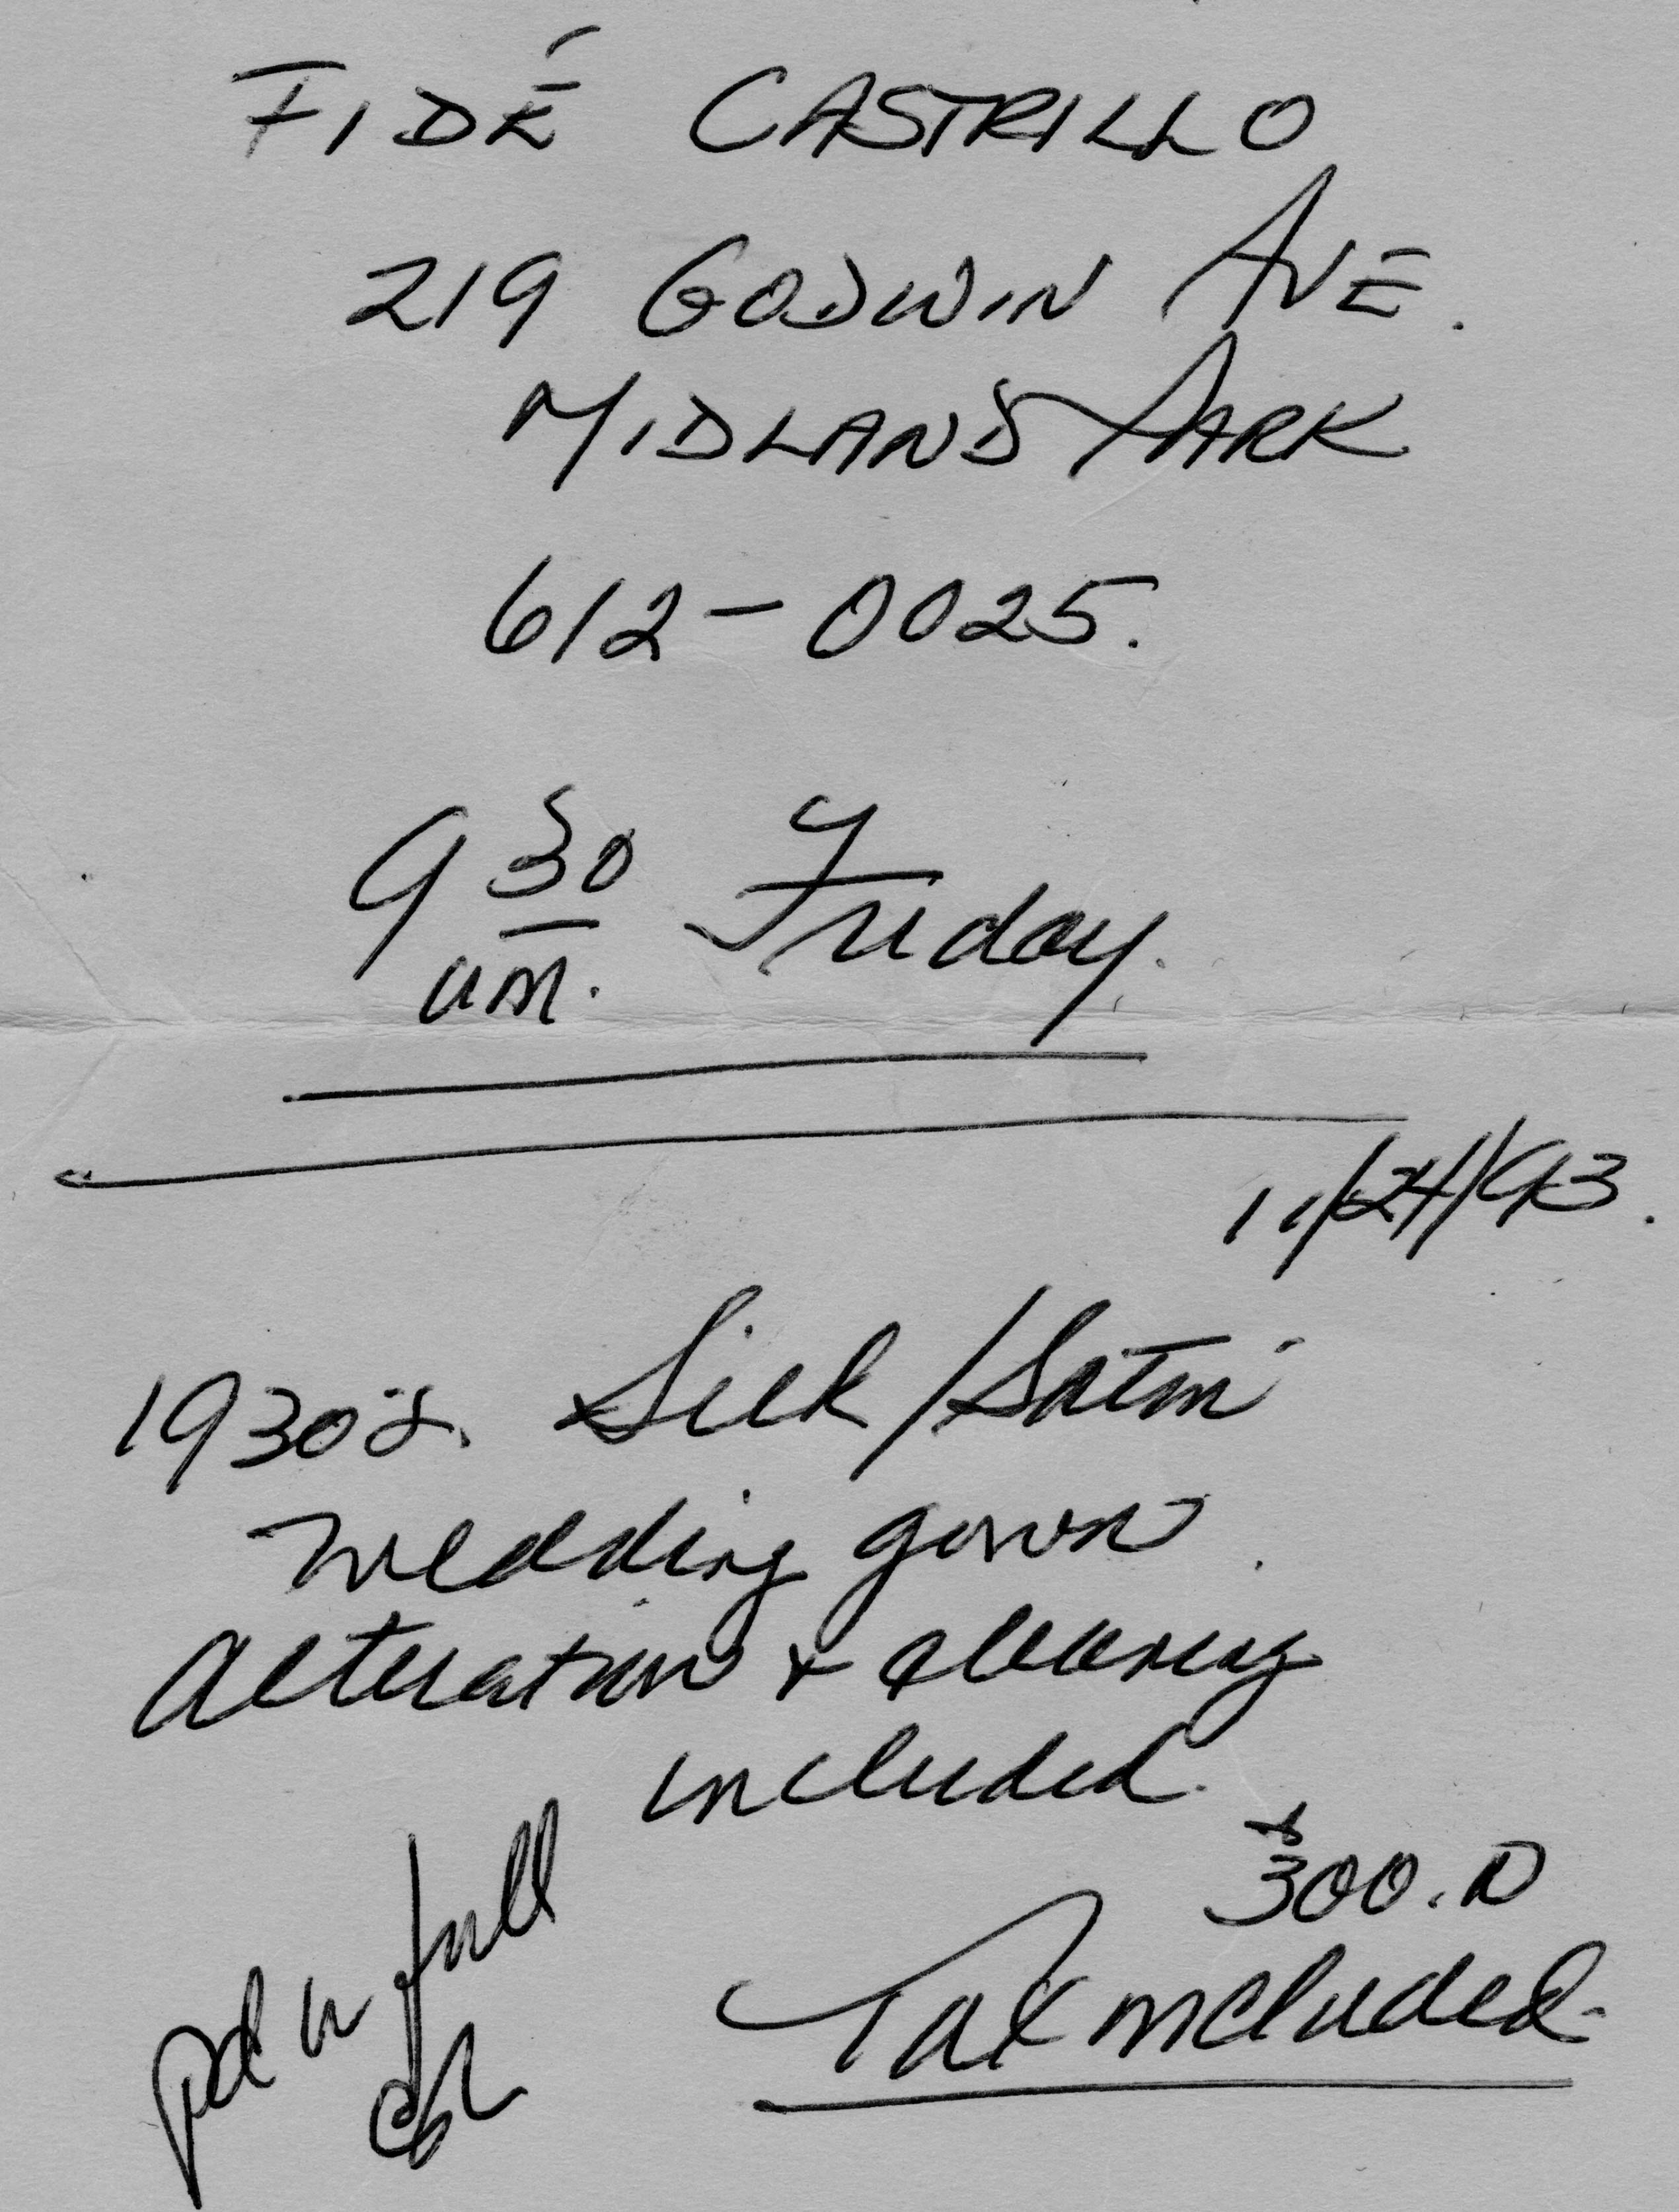 FIDÉ CASTRILLO
219 GODWIN AVE.
MIDLAND PARK
612-0025.
9 30 Friday.
am.
11/24/93.
1930's. Silk/Satin
wedding gown.
Alteration + cleaning
included.
$300.00
Tax included.
pd in full